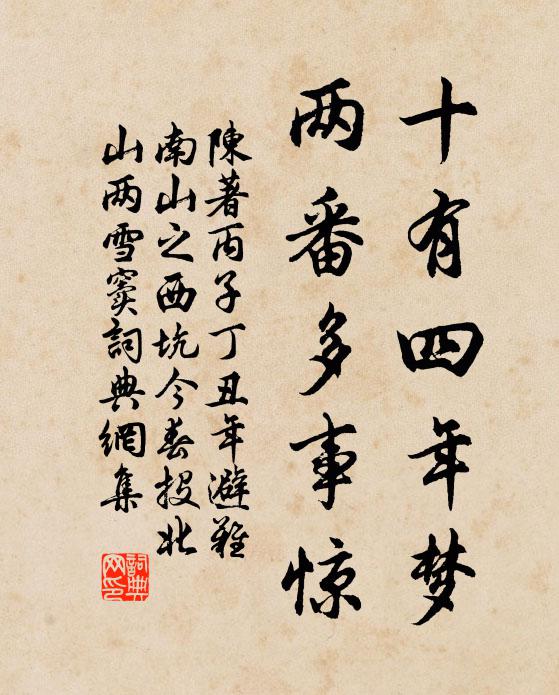 十有四年梦
两番多事惊
陳著丙子丁丑年避難
南山之西坑今春投北
山两雪窦詞典網集
詞典网印